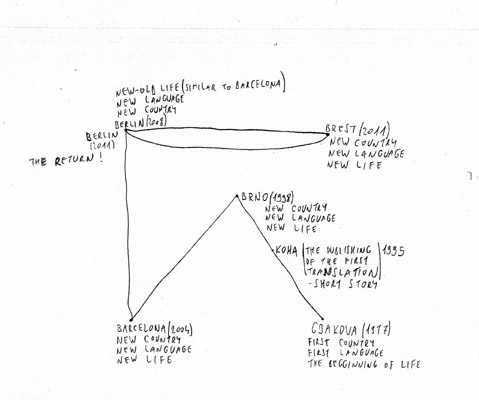 NEW-OLD LIFE (SIMILAR TO BARCELONA)
NEW LANGUAGE
NEW COUNTRY
BERLIN (2008)
BERLIN
(2011)
THE RETURN!
BREST (2011)
NEW COUNTRY
NEW LANGUAGE
NEW LIFE
BRNO (1998)
NEW COUNTRY
NEW LANGUAGE
NEW LIFE
KOHA (THE PUBLISHING OF THE FIRST TRANSLATION - SHORT STORY) 1995
BARCELONA (2004)
NEW COUNTRY
NEW LANGUAGE
NEW LIFE
GJAKOVA (1977)
FIRST COUNTRY
FIRST LANGUAGE
THE BEGGINING OF LIFE